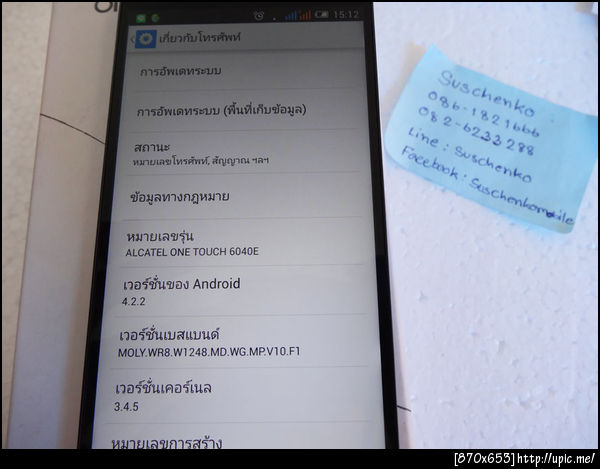 15:12
เกี่ยวกับโทรศัพท์
การอัพเดทระบบ
การอัพเดทระบบ (พื้นที่เก็บข้อมูล)
สถานะ
หมายเลขโทรศัพท์, สัญญาณ ฯลฯ
ข้อมูลทางกฎหมาย
หมายเลขรุ่น
ALCATEL ONE TOUCH 6040E
เวอร์ชั่นของ Android
4.2.2
เวอร์ชั่นเบสแบนด์
MOLY.WR8.W1248.MD.WG.MP.V10.F1
เวอร์ชั่นเคอร์เนล
3.4.5
หมายเลขการสร้าง
Suschenko
086-1821666
082-6233288
Line : Suschenko
Facebook : Suschenkomobile
[870x653] http://upic.me/